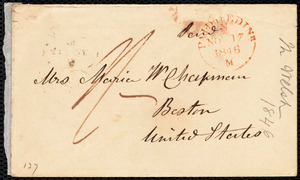 Paid
NO 17
1846
M
Mrs Maria W Chapman
Boston
United States
M Welsh
1846
127